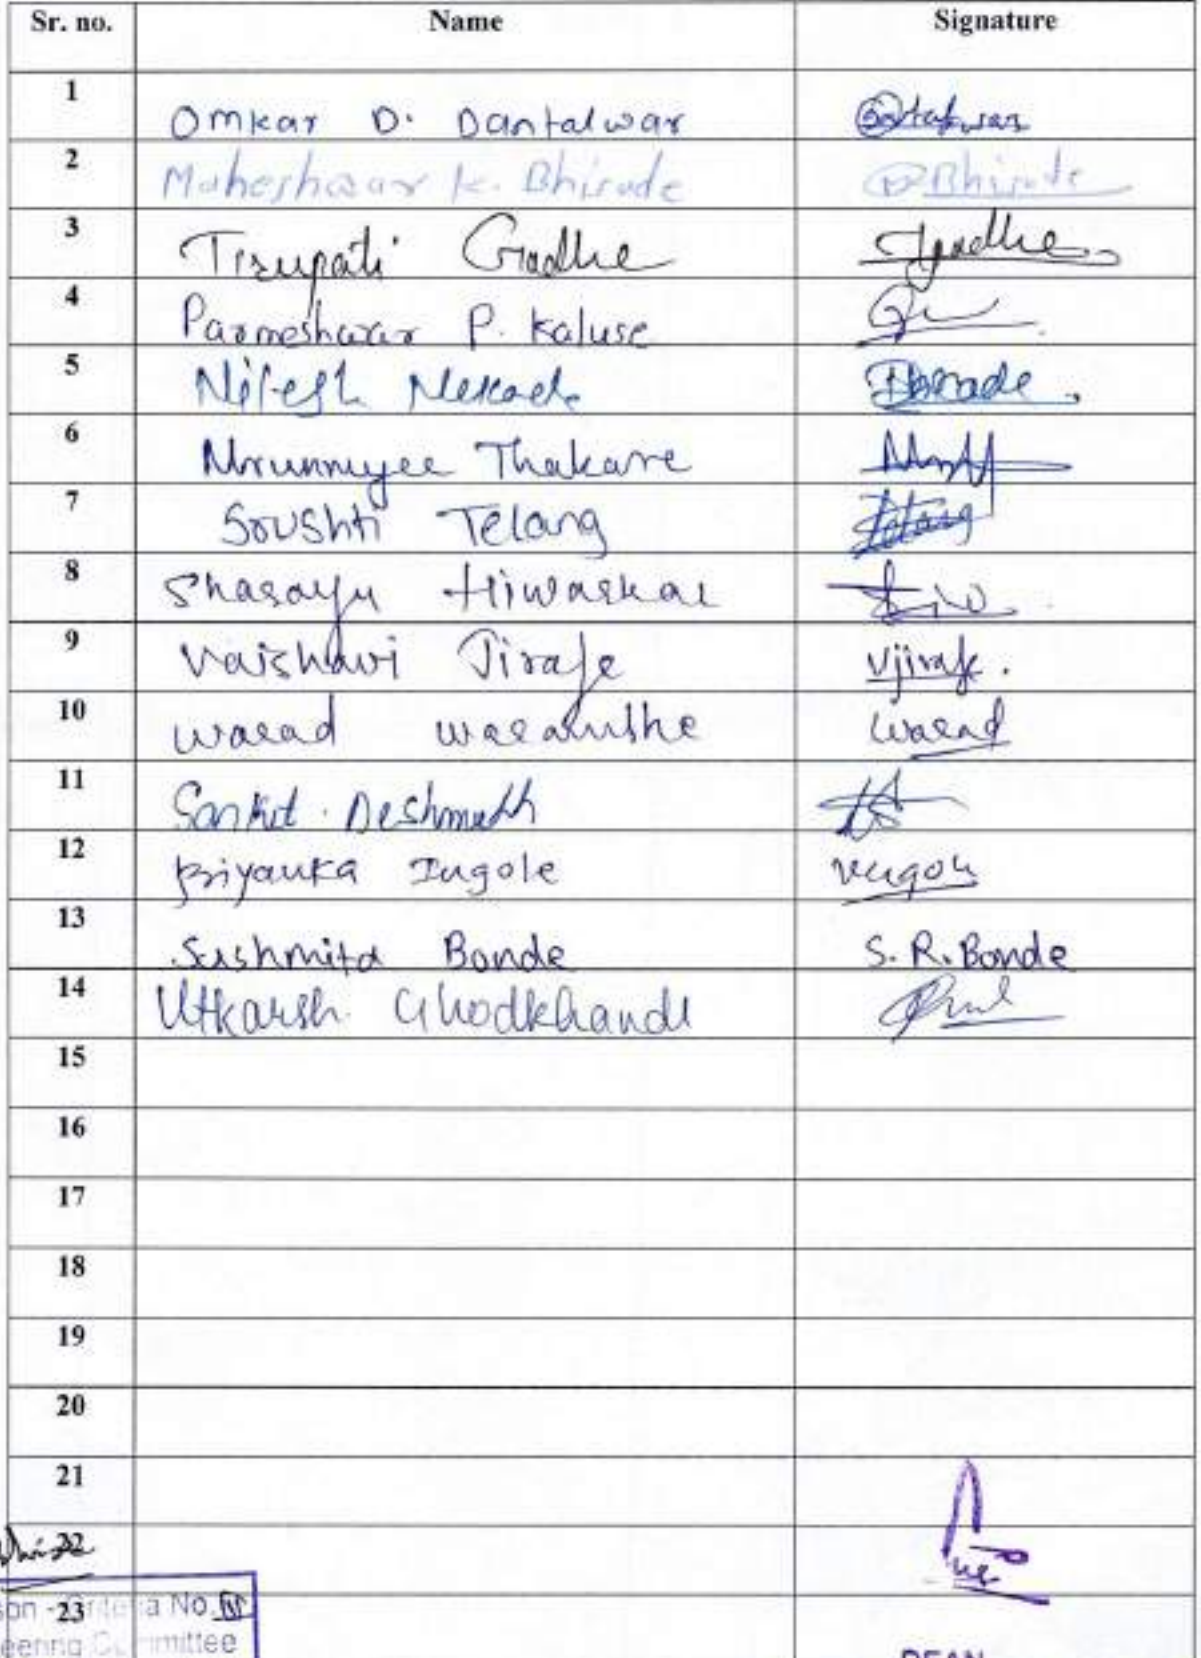 Sr. no. Name Signature
1 Omkar D. Dantalwar
2 Maheshwar k. Bhirade Bhirade
3 Tirupati Gadhe Gadhe
4 Parmeshwar P. Kaluse
5 Nilesh Nerade
6 Mrunmyee Thakare
7 Srushti Telang Telang
8 Sharayu Hiwarkar
9 Vaishavi Jirafe Vjirafe.
10 warad warambhe warad
11 Sanket Deshmukh
12 Priyanka Ingole
13 Sushmita Bonde S. R. Bonde
14 Utkarsh Ghodkhande
15
16
17
18
19
20
21
22
23 a No. IV
mmittee
DEAN